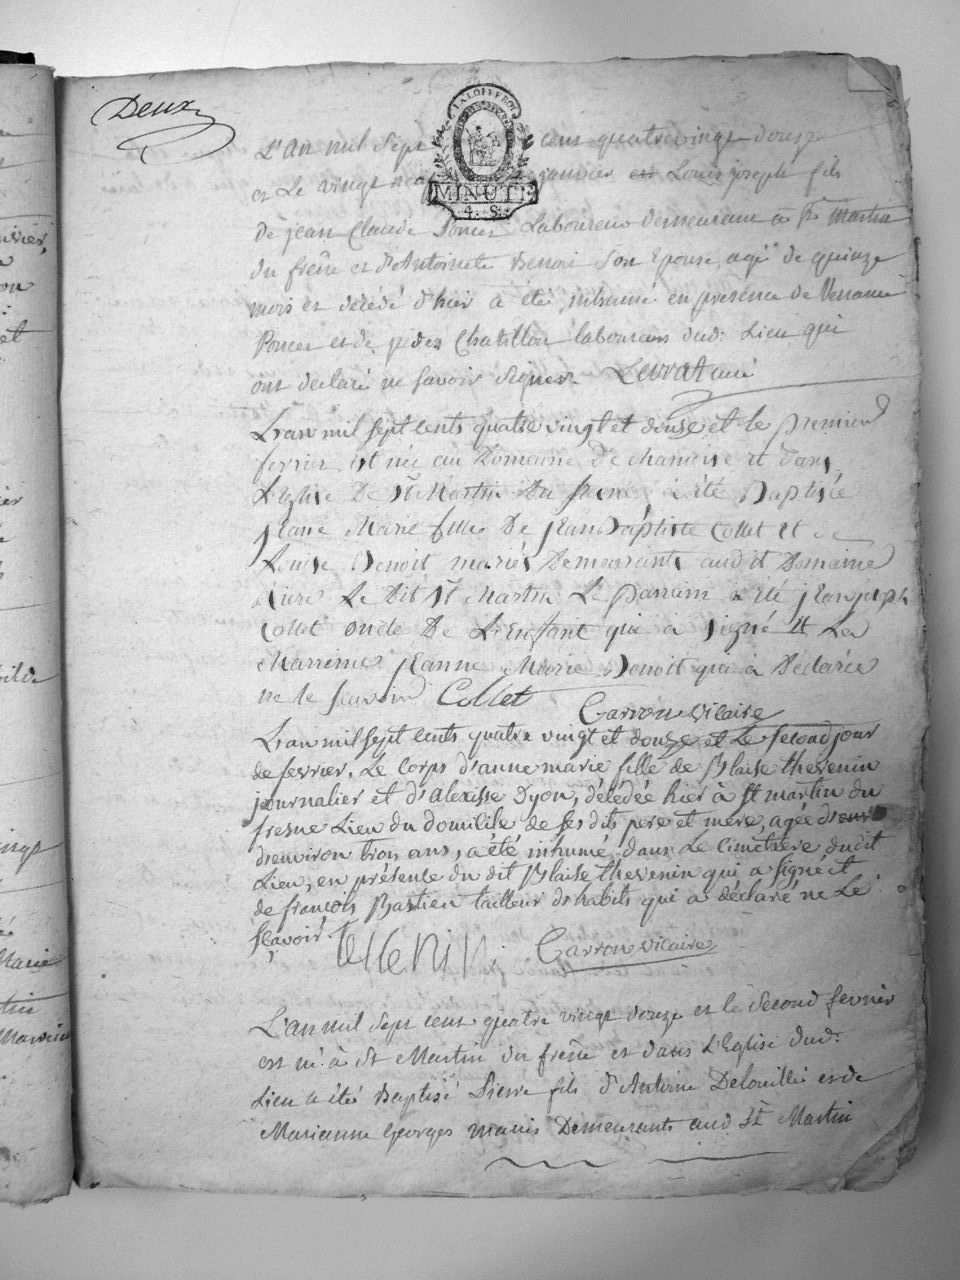 Deux
LA LOI ET LE ROI
MINUTE
4. S.
L'an mil sept cens quatrevingt douze
et Le vingt janvier est Louis joseph fils
De jean Claude Poncet Laboureur demeurant à St Martin
du frêne et d'Antoinette Benoi son Epouse, agé de quinze
mois et décédé d'hier a été inhumé en présence de
Poncet et de Chatillon laboureurs dud. Lieu qui
ont declaré ne savoir signer. Levrat curé
L'an mil sept cents quatre vingt et douse et le premier
fevrier est née au Domaine De chamoise et dans
L'Eglise De St Martin Du frene à été Baptisée
jeanne Marie fille De jean Baptiste Collet et De
Louise Benoit mariés Demeurants audit Domaine
Le Dit St Martin Le parrain a été jean joseph
Collet oncle De L'Enfant qui à signé et La
Marreine jeanne Marie Benoit qui à Déclarée
ne le scavoir Collet
Garron vicaire
L'an mil sept cents quatre vingt et douze et Le second jour
de fevrier, Le corps d'anne marie fille de Blaise thevenin
journalier et d'alexisse Dyon, décédée hier à St martin du
fresne Lieu du domicile de ses dits pere et mere, agée
d'environ trois ans, a été inhumé dans Le cimetiere dudit
Lieu, en présence du dit Blaise thevenin qui a signé et
de françois Bastien tailleur d'habits qui a déclaré ne Le
sçavoir. teveNiN. Garron vicaire
L'an mil sept cent quatre vingt douze et le second fevrier
est né à St Martin du frêne et dans L'Eglise dud.
Lieu a été Baptisé Pierre fils d'Antoine Delouille et de
Marianne Georges mariés Demeurants aud St Martin